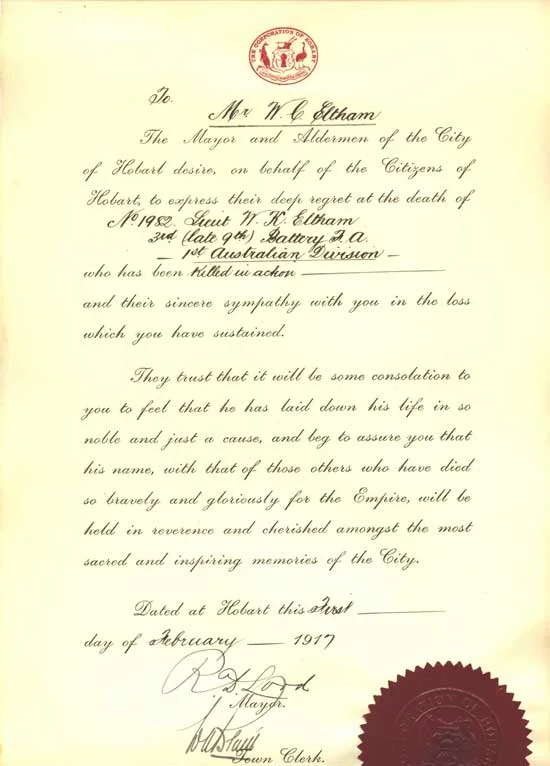 THE CORPORATION OF HOBART
To.
Mr W. C. Eltham
The Mayor and Aldermen of the City
of Hobart desire, on behalf of the Citizens of
Hobart, to express their deep regret at the death of
No 1982. Lieut W. K. Eltham
3rd (late 9th) Battery F. A.
— 1st Australian Division —
who has been Killed in action
and their sincere sympathy with you in the loss
which you have sustained.
They trust that it will be some consolation to
you to feel that he has laid down his life in so
noble and just a cause, and beg to assure you that
his name, with that of those others who have died
so bravely and gloriously for the Empire, will be
held in reverence and cherished amongst the most
sacred and inspiring memories of the City.
Dated at Hobart this First
day of February — 1917
R D Lord
Mayor.
Town Clerk.